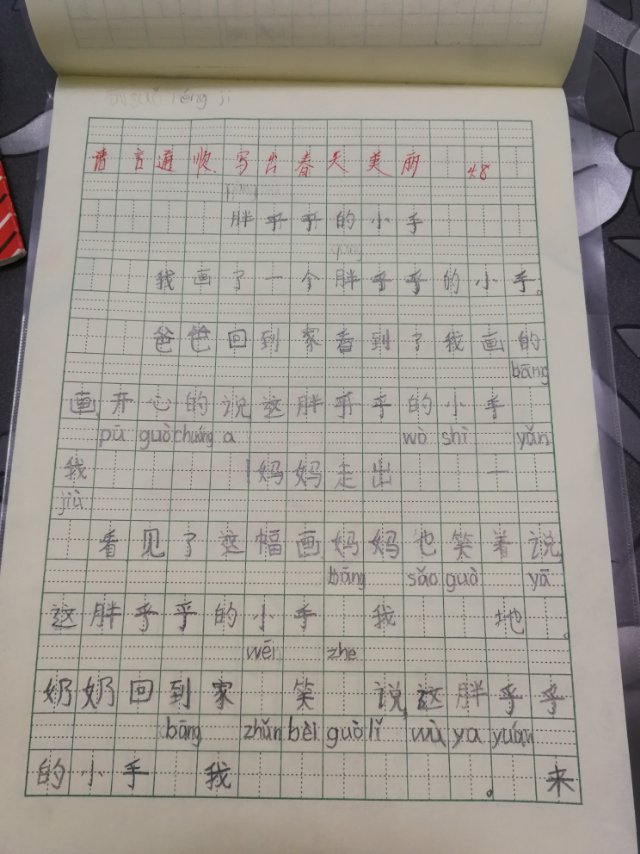 言通顺写出春天美丽 48
胖乎乎的小手
我画了一个胖乎乎的小手。
爸爸回到家看到了我画的
bāng
画开心的说这胖乎乎的小手
pū guò chuáng a wò shì yǎn
我 !妈妈走出 一
jiù
看见了这幅画妈妈也笑着说
bāng sǎo guò yā
这胖乎乎的小手 我 地。
wēi zhe
奶奶回到家 笑 说,这胖乎乎
bāng zhǔn bèi guò lǐ wù ya yuán
的小手 我 。来